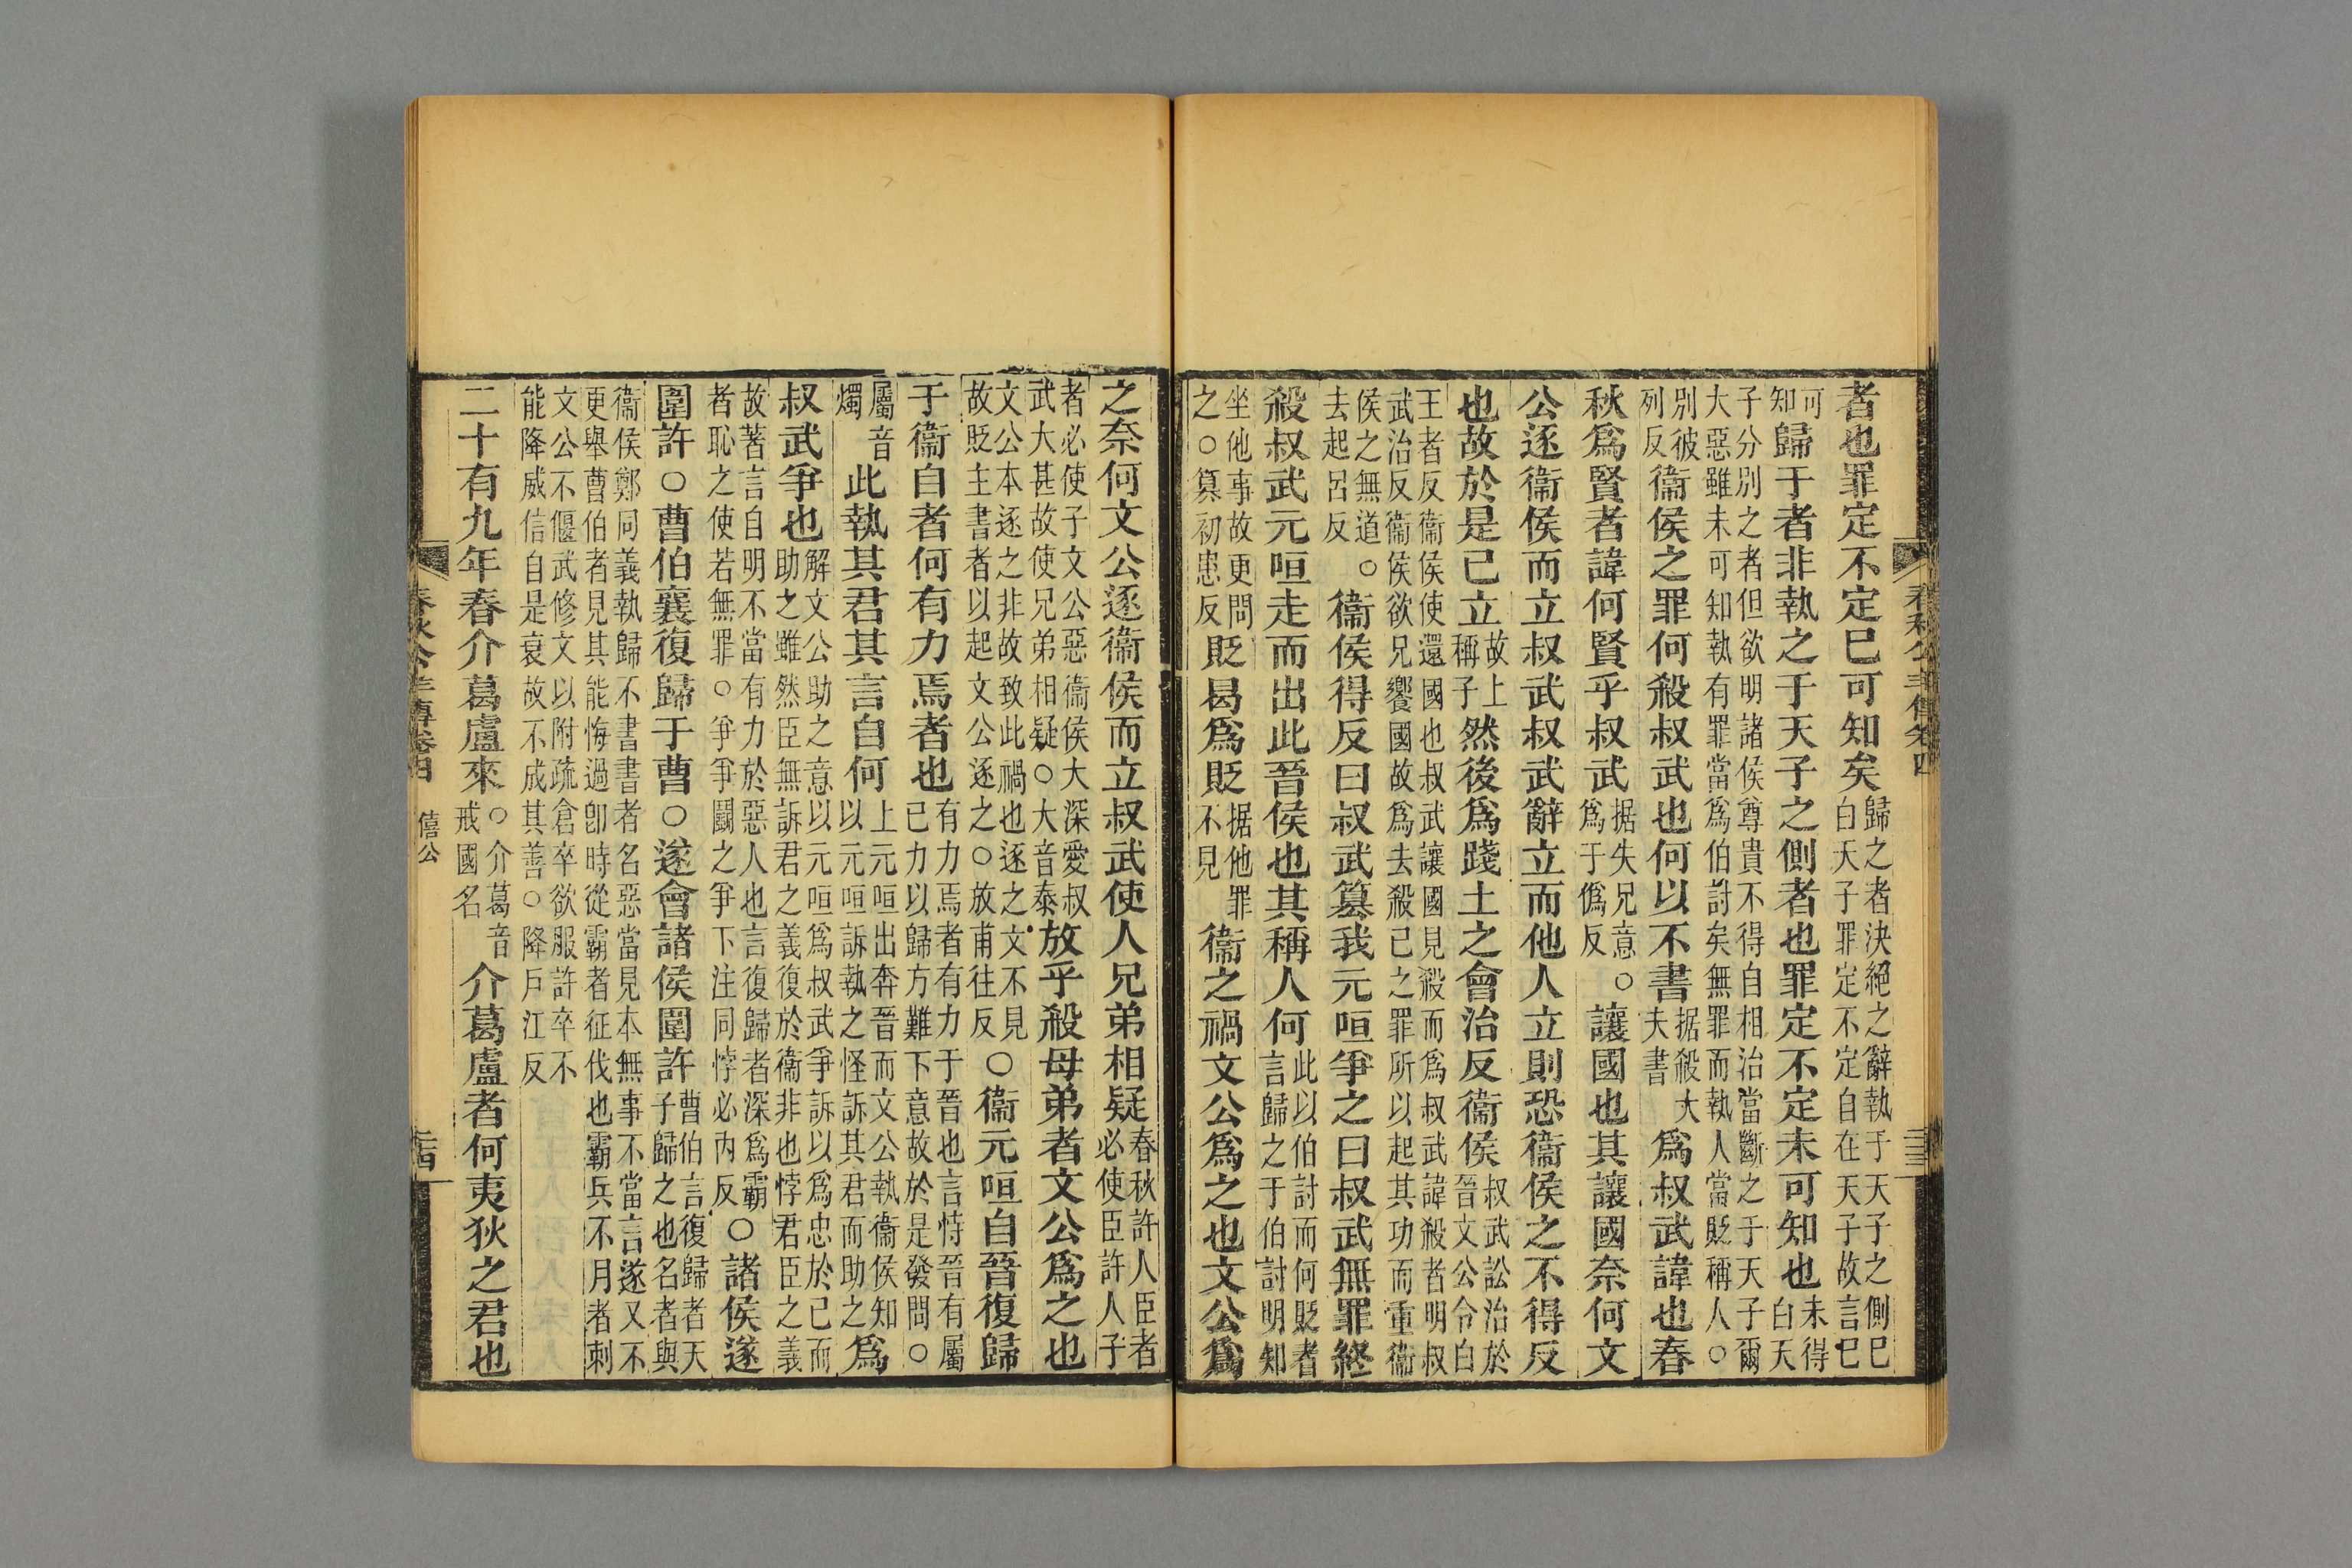 者也罪定不定已可知矣歸之者決絕之辭執于天子之側已白天子罪定不定自在天子故言已
可知歸于者非執之于天子之側者也罪定不定未可知也未得白天
子分別之者但欲明諸侯尊貴不得自相治當斷之于天子爾大惡雖未可知執有罪當爲伯討矣無罪而執人當貶稱人○
別彼列反衞侯之罪何殺叔武也何以不書据殺大夫書爲叔武諱也春
秋爲賢者諱何賢乎叔武据失兄意○爲于僞反讓國也其讓國奈何文
公逐衞侯而立叔武叔武辭立而他人立則恐衞侯之不得反
也故於是已立故上稱子然後爲踐土之會治反衞侯叔武訟治於晉文公令白
王者反衞侯使還國也叔武讓國見殺而爲叔武諱殺者明叔武治反衞侯欲兄饗國故爲去殺己之罪所以起其功而重衞
侯之無道○去起呂反衞侯得反曰叔武簒我元咺爭之曰叔武無罪終
殺叔武元咺走而出此晉侯也其稱人何此以伯討而何貶者言歸之于伯討明知
坐他事故更問之○簒初患反貶曷爲貶据他罪不見衞之禍文公爲之也文公爲
之奈何文公逐衞侯而立叔武使人兄弟相疑春秋許人臣者必使臣許人子
者必使子文公惡衞侯大深愛叔武大甚故使兄弟相疑○大音泰放乎殺母弟者文公爲之也
文公本逐之非故致此禍也逐之文不見故貶主書者以起文公逐之○放甫往反○衞元咺自晉復歸
于衞自者何有力焉者也有力焉者有力于晉也言恃晉有屬己力以歸方難下意故於是發問○
屬音燭此執其君其言自何上元咺出奔晉而文公執衞侯知以元咺訴執之怪訴其君而助之爲
叔武爭也解文公助之意以元咺爲叔武爭訴以爲忠於己而助之雖然臣無訴君之義復於衞非也悖君臣之義
故著言自明不當有力於惡人也言復歸者深爲霸者恥之使若無罪○爭爭鬭之爭下注同悖必內反○諸侯遂
圍許○曹伯襄復歸于曹○遂會諸侯圍許曹伯言復歸者天子歸之也名者與
衞侯鄭同義執歸不書書者名惡當見本無事不當言遂又不更舉曹伯者見其能悔過卽時從霸者征伐也霸兵不月者刺
文公不偃武修文以附疏倉卒欲服許卒不能降威信自是衰故不成其善○降戶江反
二十有九年春介葛盧來○介葛音戒國名介葛盧者何夷狄之君也
春秋公羊傳卷四 僖公 二十四